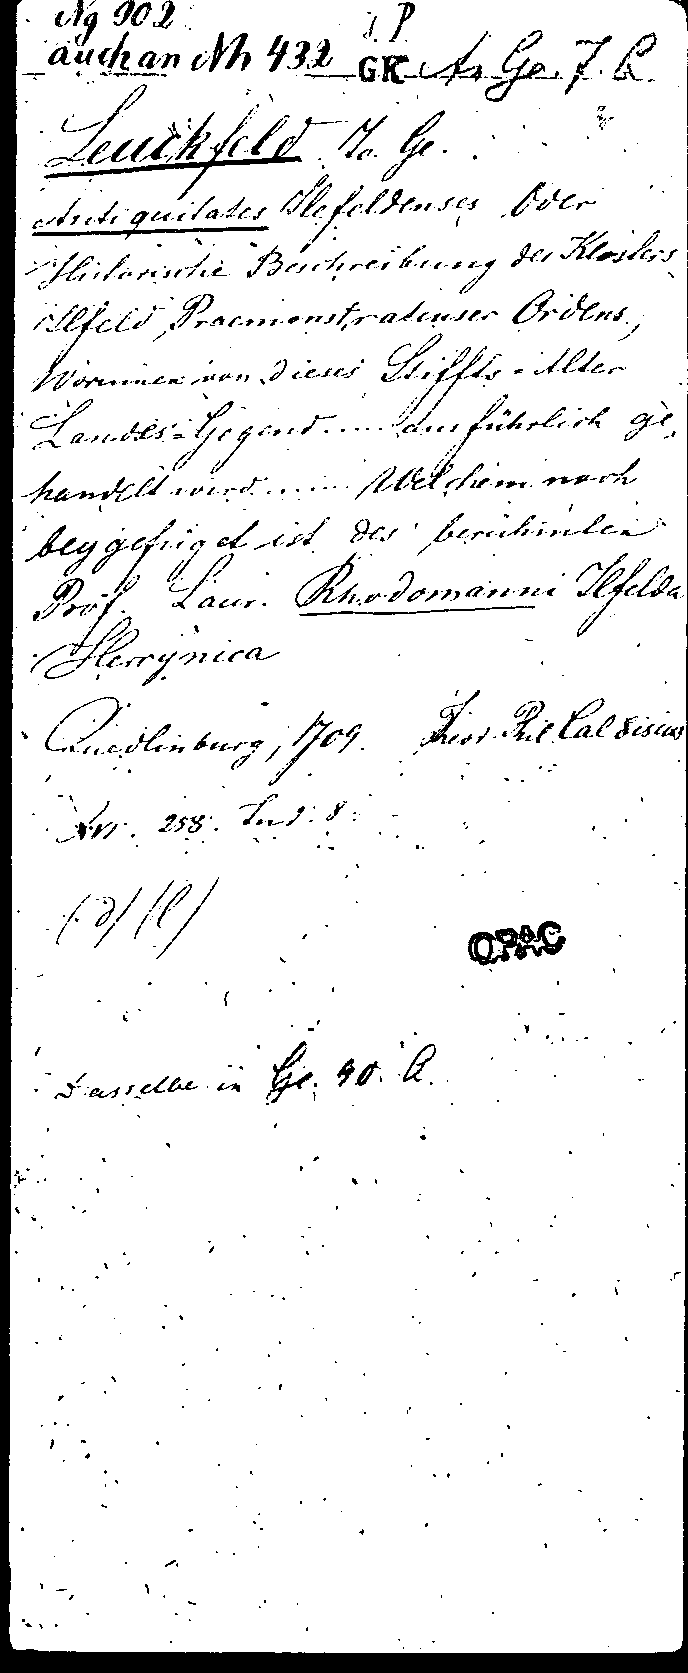 Ng 902
auch an Nh 432 GK An Ge. 7. C.
Leuckfeld Jo. Ge.
Antiquitates Ilefeldenses Oder
Historische Beschreibung des Klosters
Ilfeld, Praemonstratenser Ordens,
Worinnen von dieses Stiffts-Alter
Landes-Gegend .... ausführlich ge-
handelt wird .... Welchem noch
beygefüget ist des berühmten
Prof. Laur. Rhodomanni Ilfelda
Hercynica
Quedlinburg, 1709. Theod. Phil Calvisius
258. Ind. 8
Dasselbe in Ge. 40. C.
OPAC